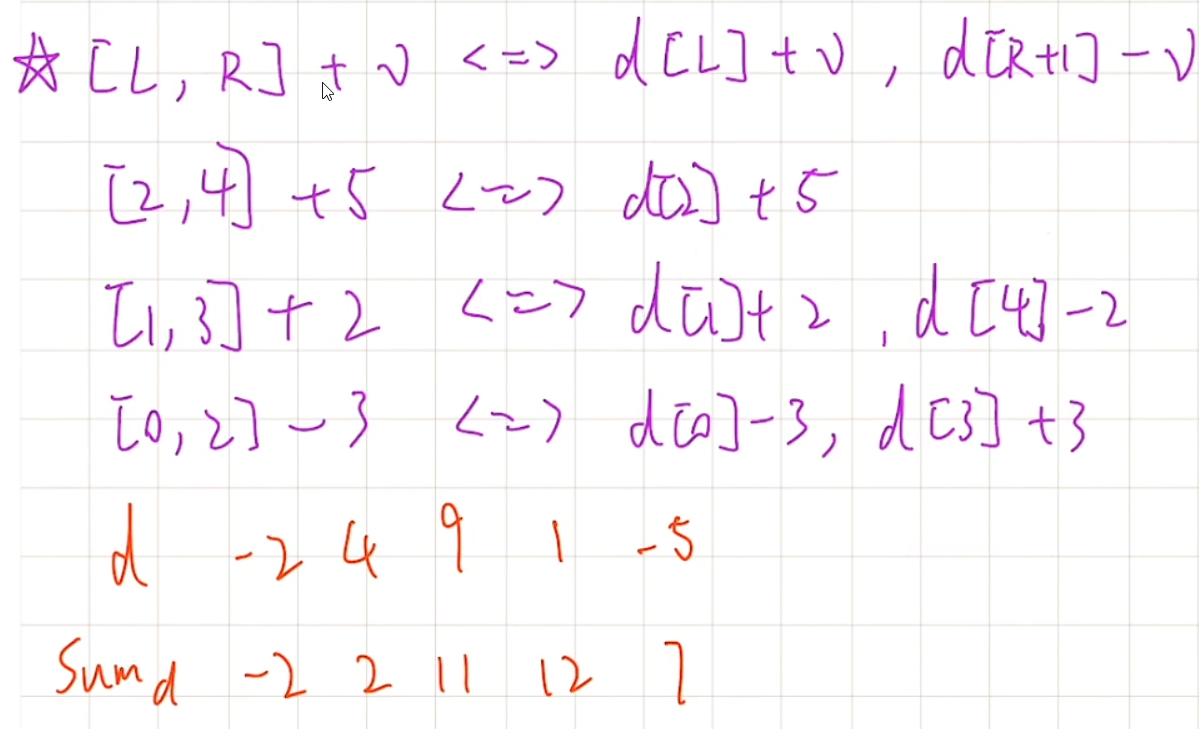 ☆ [L, R] + v <=> d[L] + v , d[R+1] - v
[2, 4] + 5 <=> d[2] + 5
[1, 3] + 2 <=> d[1] + 2 , d[4] - 2
[0, 2] - 3 <=> d[0] - 3, d[3] + 3
d -2 4 9 1 -5
Sum d -2 2 11 12 7